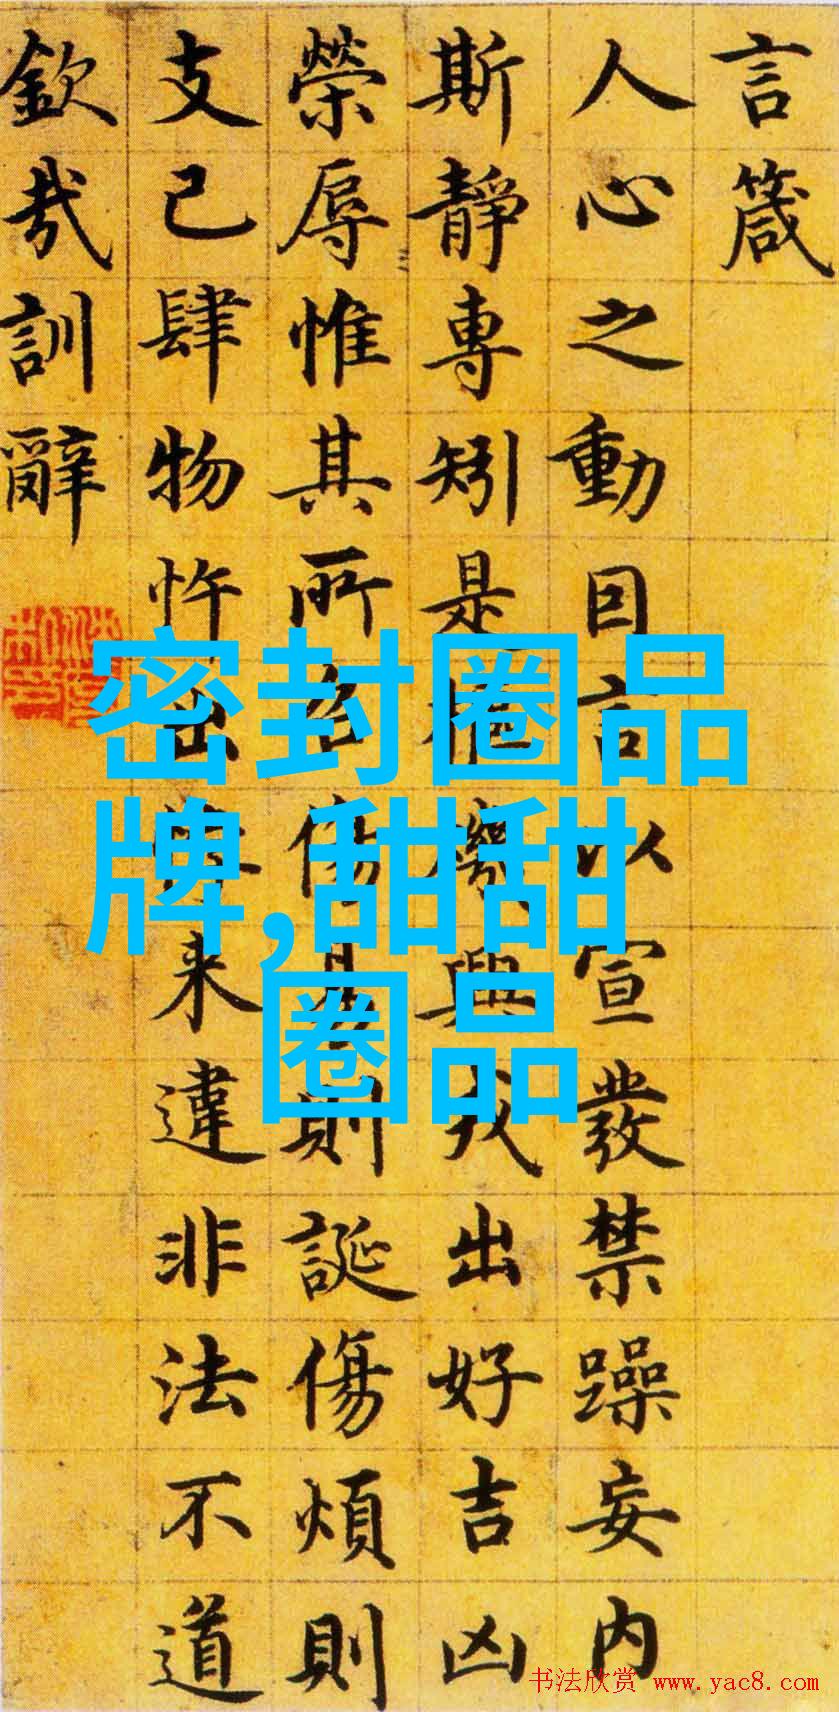 言箴
人心之動因言以宣發禁躁妄内
斯靜專矧是樞機興戎出好吉凶
榮辱惟其所召傷易則誕傷煩則
支己肆物忤出悖来違非法不道
欽哉訓辭
密封圈品
牌,甜甜
圈品
书法欣赏 www.yac8.com